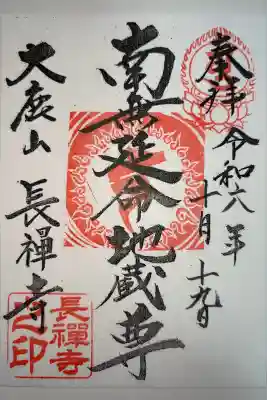 奉拝
令和六年
十月十九日
南無延命地蔵尊
大鹿山
長禅寺
長禪寺
之印